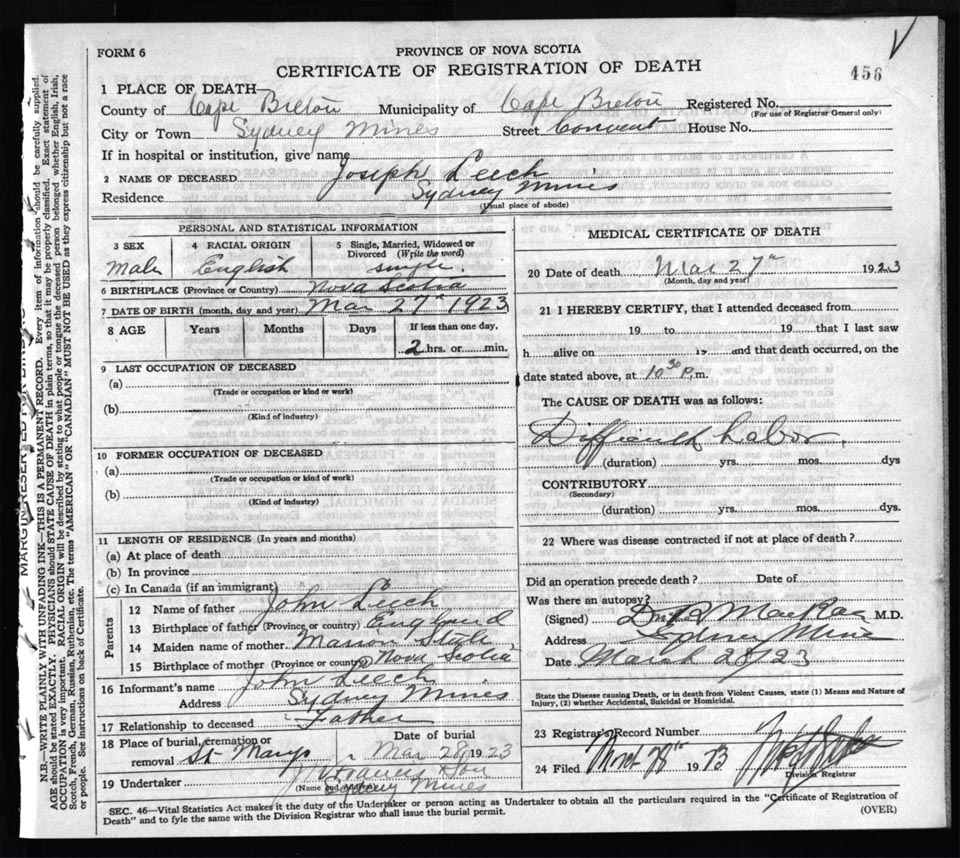 FORM 6
PROVINCE OF NOVA SCOTIA
CERTIFICATE OF REGISTRATION OF DEATH
456
1 PLACE OF DEATH—
County of Cape Breton Municipality of Cape Breton Registered No.
(For use of Registrar General only)
City or Town Sydney Mines Street Convent House No.
If in hospital or institution, give name
2 NAME OF DECEASED Joseph Leech
Residence Sydney Mines
(Usual place of abode)
PERSONAL AND STATISTICAL INFORMATION
3 SEX 4 RACIAL ORIGIN 5 Single, Married, Widowed or Divorced (Write the word)
Male English single.
6 BIRTHPLACE (Province or Country) Nova Scotia
7 DATE OF BIRTH (month, day and year) Mar 27th 1923
8 AGE Years Months Days If less than one day,
2 hrs. or min.
9 LAST OCCUPATION OF DECEASED
(a)
(Trade or occupation or kind or work)
(b)
(Kind of industry)
10 FORMER OCCUPATION OF DECEASED
(a)
(Trade or occupation or kind of work)
(b)
(Kind of industry)
11 LENGTH OF RESIDENCE (In years and months)
(a) At place of death
(b) In province
(c) In Canada (if an immigrant)
Parents
12 Name of father John Leech
13 Birthplace of father England
14 Maiden name of mother Marion
15 Birthplace of mother (Province or country) Nova Scotia
16 Informant's name John Leech
Address Sydney Mines
17 Relationship to deceased Father
18 Place of burial, cremation or removal St Marys Date of burial Mar 28 1923
19 Undertaker
(Name and Address) Sydney Mines
MEDICAL CERTIFICATE OF DEATH
20 Date of death Mar 27th 1923
(Month, day and year)
21 I HEREBY CERTIFY, that I attended deceased from
19 to 19 that I last saw
h alive on 19 and that death occurred, on the
date stated above, at 10 30 P. m.
The CAUSE OF DEATH was as follows:
Difficult Labor.
(duration) yrs. mos. dys
CONTRIBUTORY
(Secondary)
(duration) yrs. mos. dys.
22 Where was disease contracted if not at place of death?
Did an operation precede death? Date of
Was there an autopsy?
(Signed) MacRae M.D.
Address Sydney Mines
Date March 28/23
State the Disease causing Death, or in death from Violent Causes, state (1) Means and Nature of
Injury, (2) whether Accidental, Suicidal or Homicidal.
23 Registrar's Record Number
24 Filed 28th 1923
Division Registrar
SEC. 46—Vital Statistics Act makes it the duty of the Undertaker or person acting as Undertaker to obtain all the particulars required in the "Certificate of Registration of
Death" and to fyle the same with the Division Registrar who shall issue the burial permit.
(OVER)
N.B.—WRITE PLAINLY WITH UNFADING INK—THIS IS A PERMANENT RECORD. Every item of information should be carefully supplied.
AGE should be stated EXACTLY. PHYSICIANS should STATE CAUSE OF DEATH in plain terms, so that it may be properly classified. Exact statement of
OCCUPATION is very important. RACIAL ORIGIN will be described by stating to what people or tongue the deceased person belonged whether English, Irish,
Scotch, French, German, Russian, Ruthenian, etc. The terms "AMERICAN" OR "CANADIAN" MUST NOT BE USED as they express citizenship but not a race
or people. See instructions on back of Certificate.